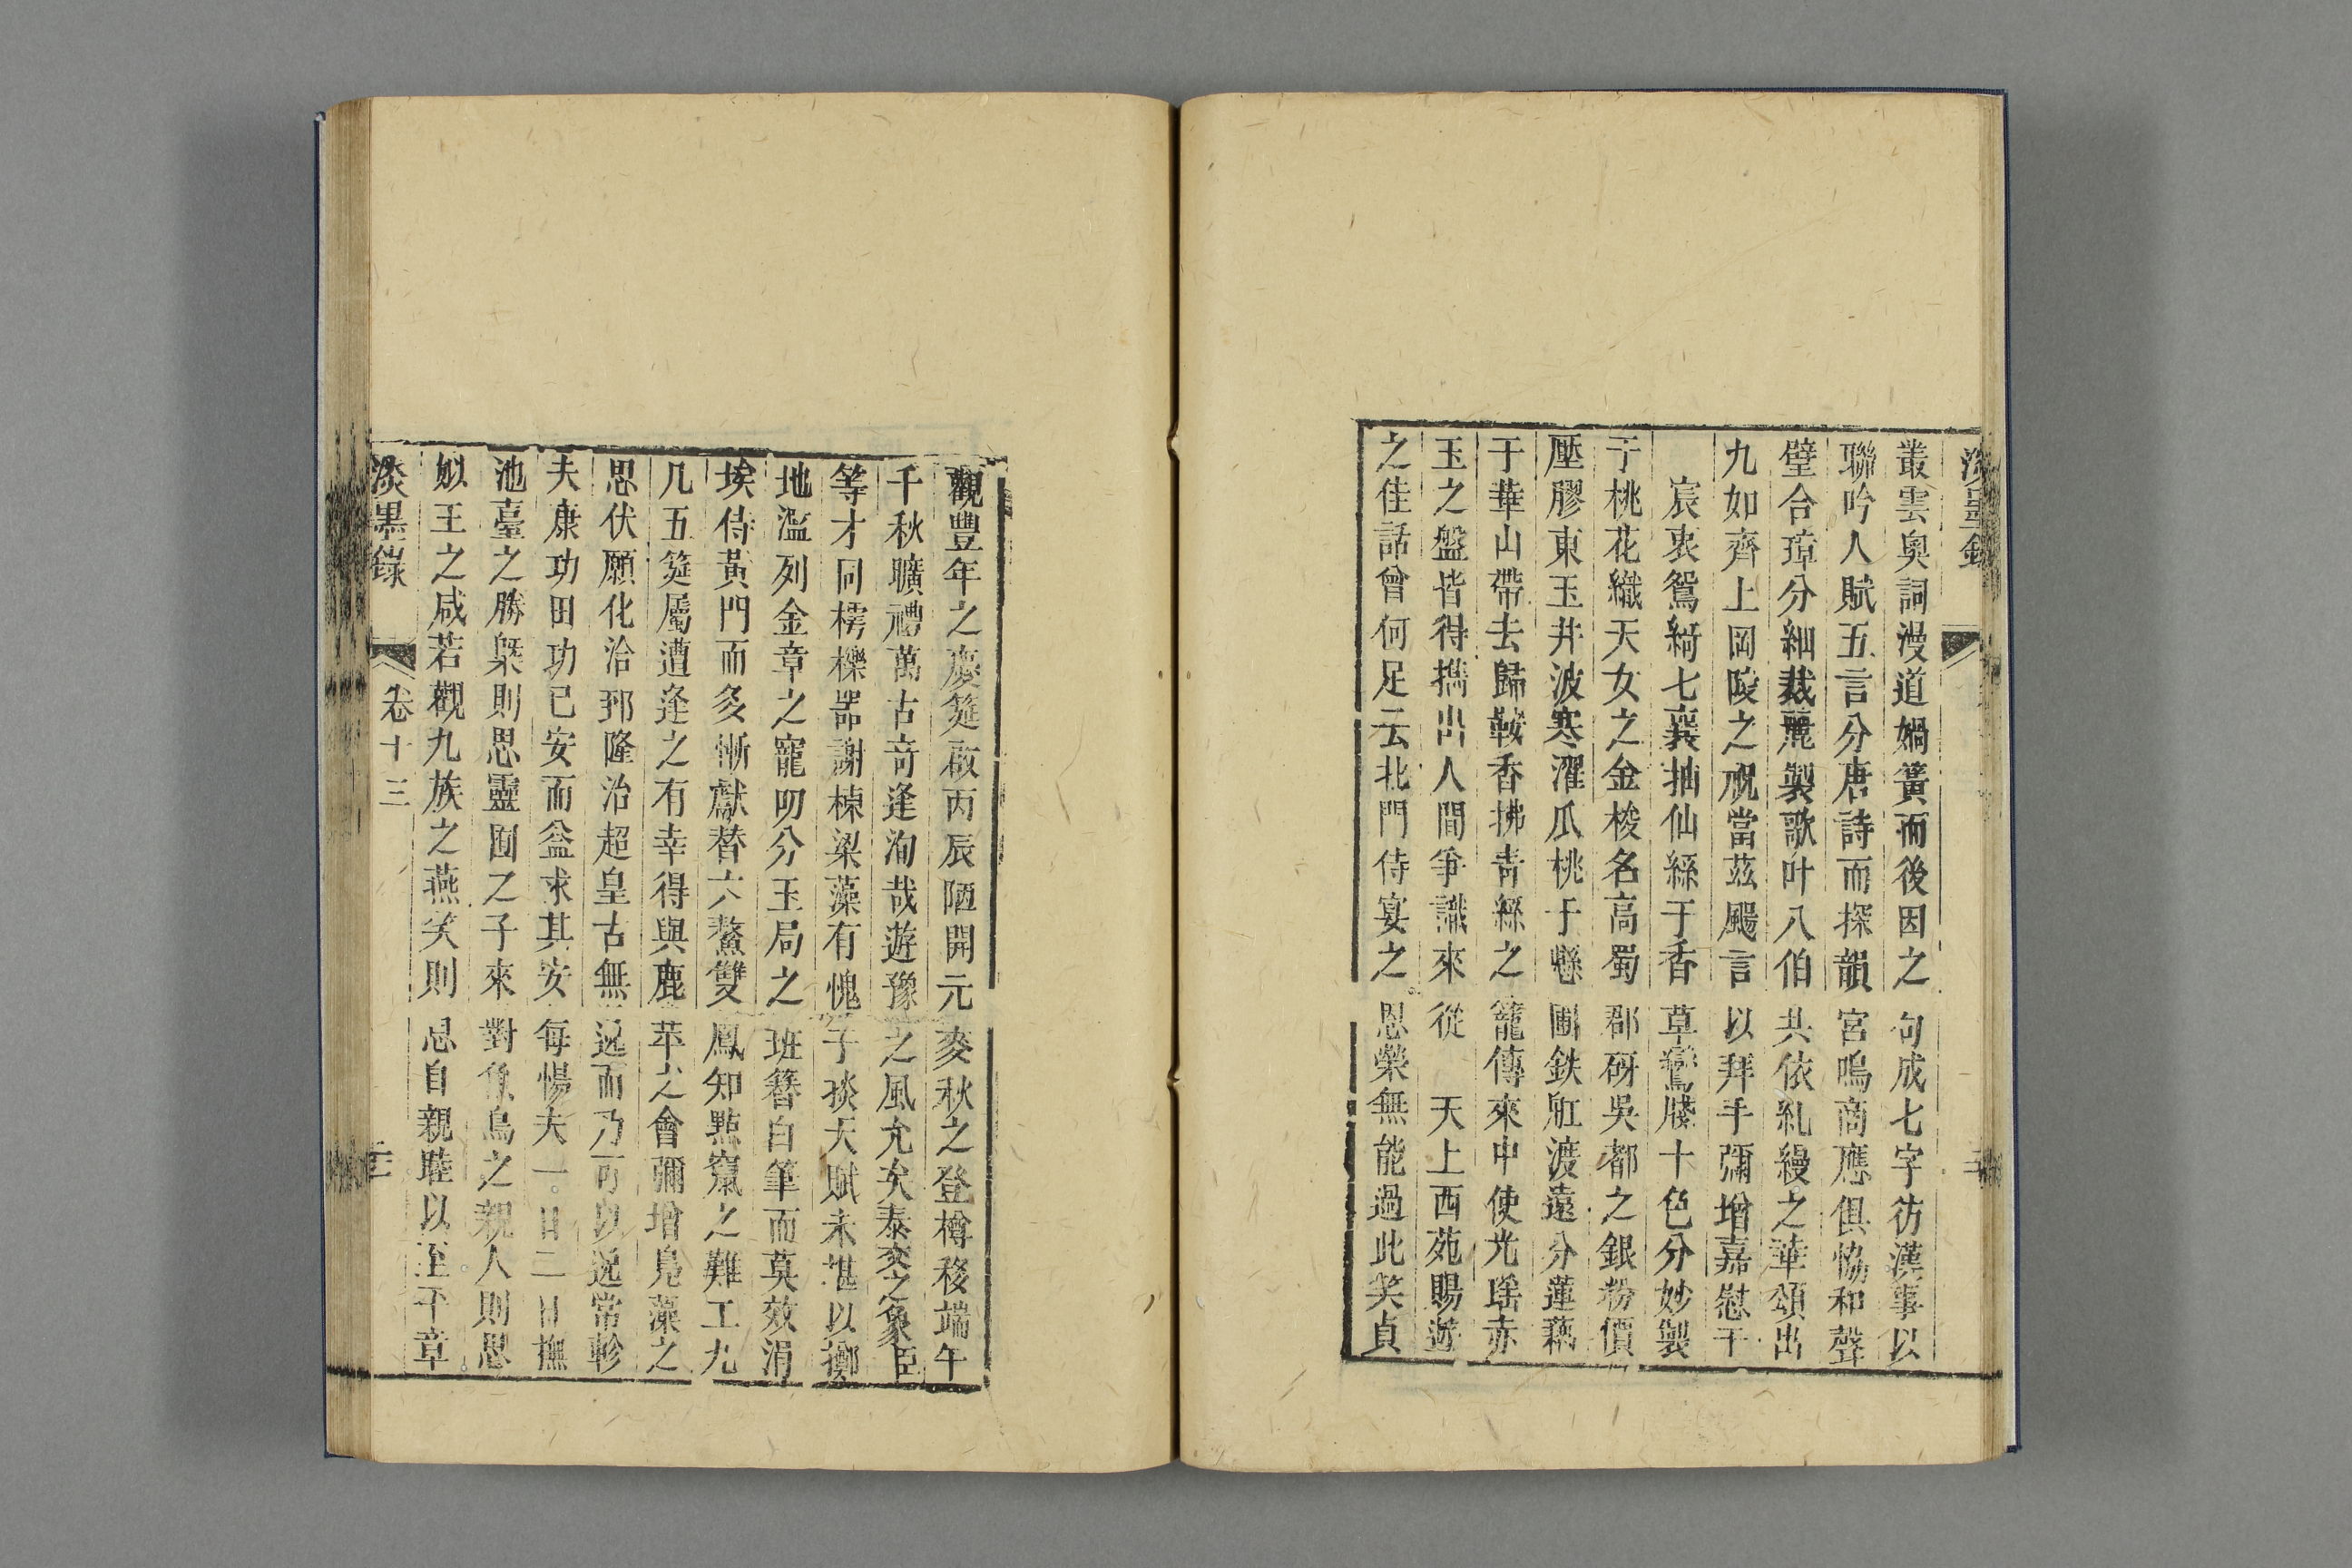 叢雲奧詞漫道媧簧而後因之句成七字彷漢事以
聯吟人賦五言分唐詩而探韻宮鳴商應俱恊和聲
璧合璋分細裁麗製歌叶八伯共依糺縵之華頌出
九如齊上岡陵之祝當茲颺言以拜手彌增嘉慰于
宸衷鴛綺七襄抽仙絲于香草鸞牋十色分妙製
于桃花織天女之金梭名高蜀郡硏吳都之銀粉價
壓膠東玉井波寒濯爪桃于懸圃鉄舡渡遠分蓮藕
于華山帶去歸鞍香拂靑絲之籠傳來中使光瑶赤
玉之盤皆得擕出人間爭識來從天上西苑賜遊
之佳話曾何足云北門侍宴之恩榮無能過此笑貞
觀豐年之慶筵啟丙辰陋開元麥秋之登樽移端午
千秋曠禮萬古奇逢洵哉遊豫之風允矣泰交之象臣
等才同樗櫟噐謝棟梁藻有愧于掞天賦未堪以擲
地濫列金章之寵叨分玉局之班簪白筆而莫效涓
埃侍黃門而多慚獻替六鰲雙鳳知點竄之難工九
几五筵屬遭逢之有幸得與鹿苹之會彌增鳧藻之
思伏願化洽郅隆治超皇古無逸而乃可以逸常軫
夫康功田功已安而益求其安每惕夫一日二日撫
池臺之勝槩則思靈囿之子來對魚鳥之親人則思
姒王之咸若觀九族之燕笑則思自親睦以至平章
淡墨錄
卷十三